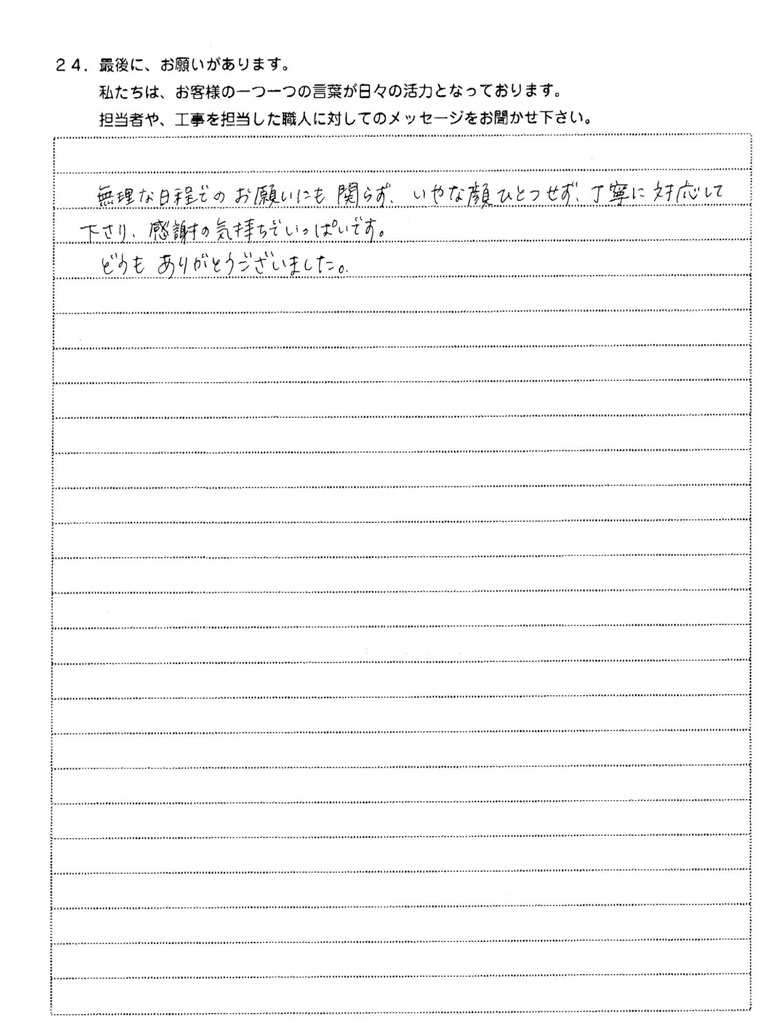 24．最後に、お願いがあります。
私たちは、お客様の一つ一つの言葉が日々の活力となっております。
担当者や、工事を担当した職人に対してのメッセージをお聞かせ下さい。
無理な日程でのお願いにも関らず、いやな顔ひとつせず、丁寧に対応して
下さり、感謝の気持ちでいっぱいです。
どうもありがとうございました。